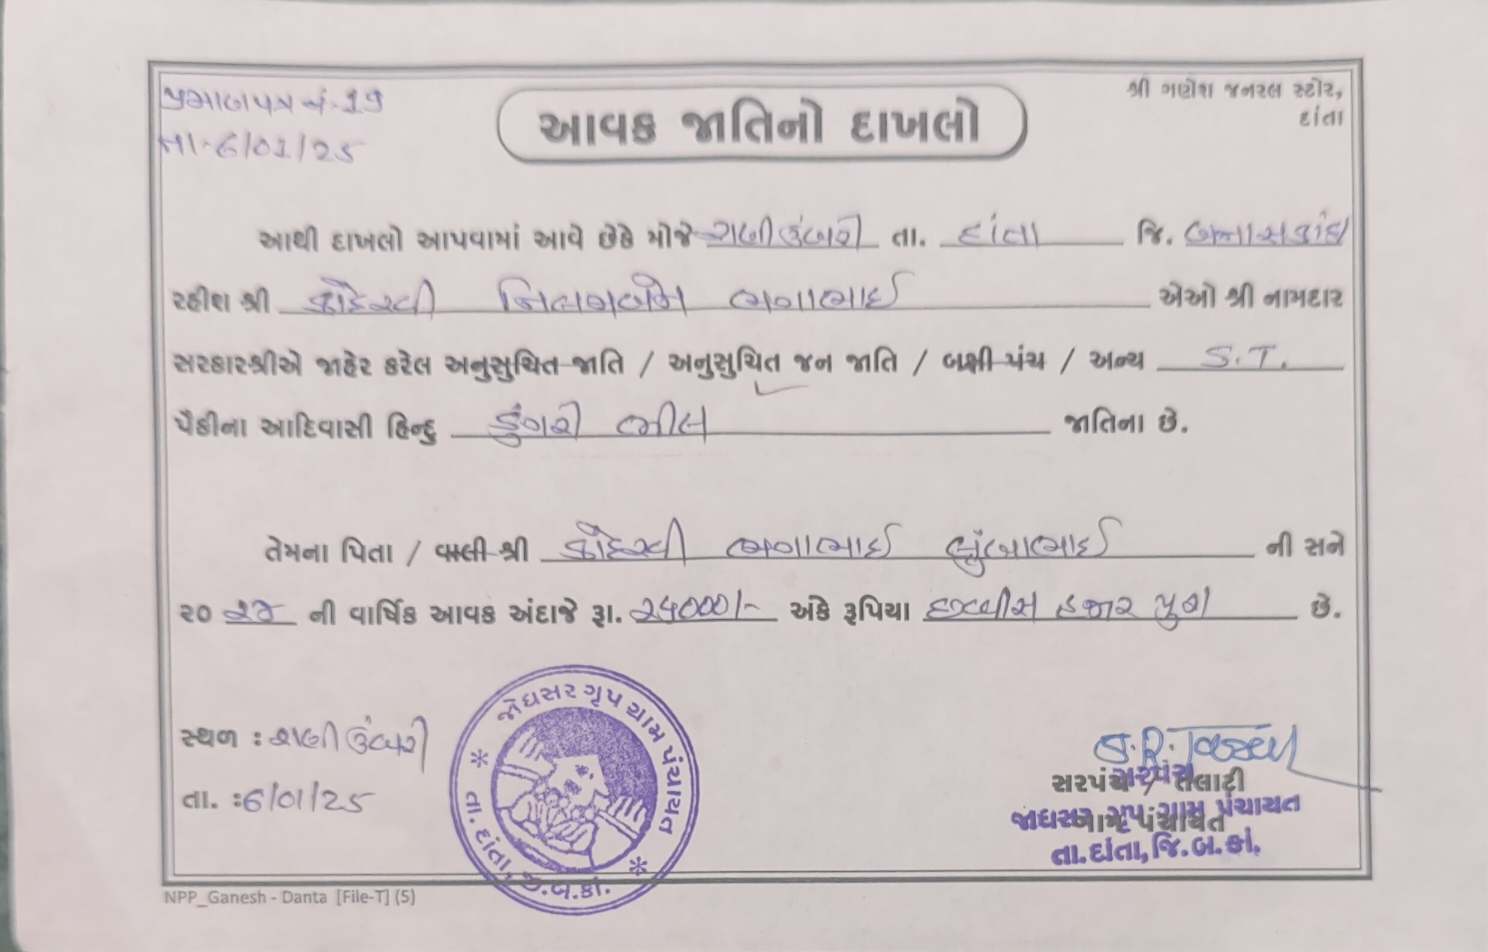 પ્રમાણપત્ર નં. 19
તા. 6/01/25
આવક જાતિનો દાખલો
શ્રી ગણેશ જનરલ સ્ટોર,
દાંતા
આથી દાખલો આપવામાં આવે છેકે મોજે રાણીઉંબરી તા. દાંતા જિ. બનાસકાંઠા
રહીશ શ્રી કોદરવી ભગાભાઈ એઓ શ્રી નામદાર
સરકારશ્રીએ જાહેર કરેલ અનુસુચિત જાતિ / અનુસુચિત જન જાતિ / બક્ષી પંચ / અન્ય S.T.
પૈકીના આદિવાસી હિન્દુ ડુંગરી ભીલ જાતિના છે.
તેમના પિતા / વાલી શ્રી કોદરવી ભગાભાઈ લુંબાભાઈ ની સને
૨૦ ૨૪ ની વાર્ષિક આવક અંદાજે રૂા. ૨૫૦૦૦/- અંકે રૂપિયા હજાર પુરા છે.
સ્થળ : રાણીઉંબરી
તા. : 6/01/25
જોધસર ગૃપ ગ્રામ પંચાયત
તા. દાંતા, જી.બ.કાં.
સરપંચ / તલાટી
સરપંચ
જોધસર ગૃપ ગ્રામ પંચાયત
તા.દાંતા, જિ.બ.કાં.
NPP_Ganesh - Danta [File-T] (5)